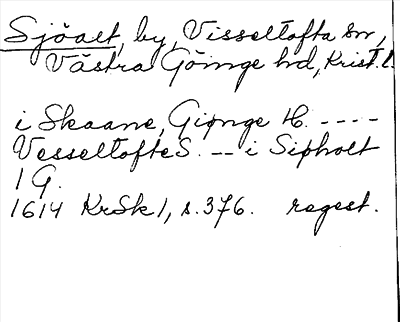 Sjöalt, by, Visseltofta sn,
Västra Göinge hd, Krist. l.
i Skaane, Giønge H. ----
Vesseltofte S. -- i Siøholt
1 G.
1614 KrSk 1, s. 376. regest.